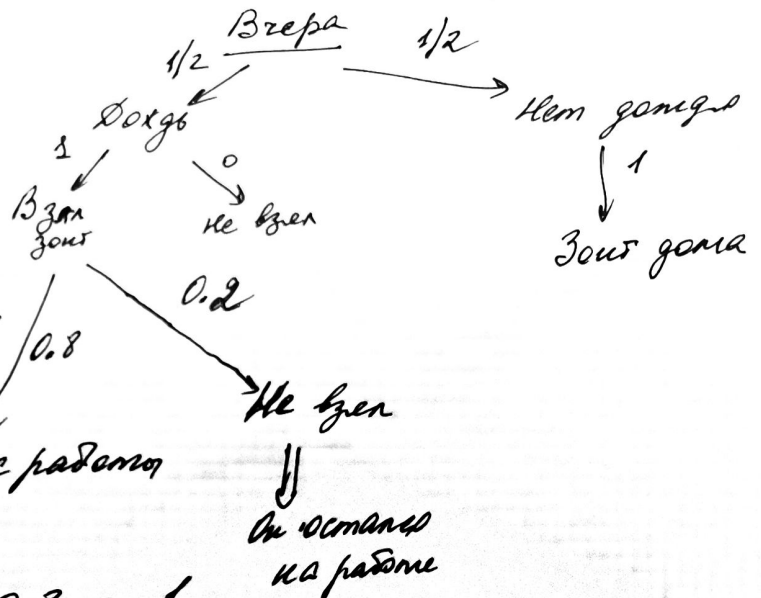 Вчера
1/2
1/2
Дождь
Нет дождя
1
0
1
Взял
зонт
не взял
Зонт дома
0.2
0.8
Не взял
с работы
Он остался
на работе